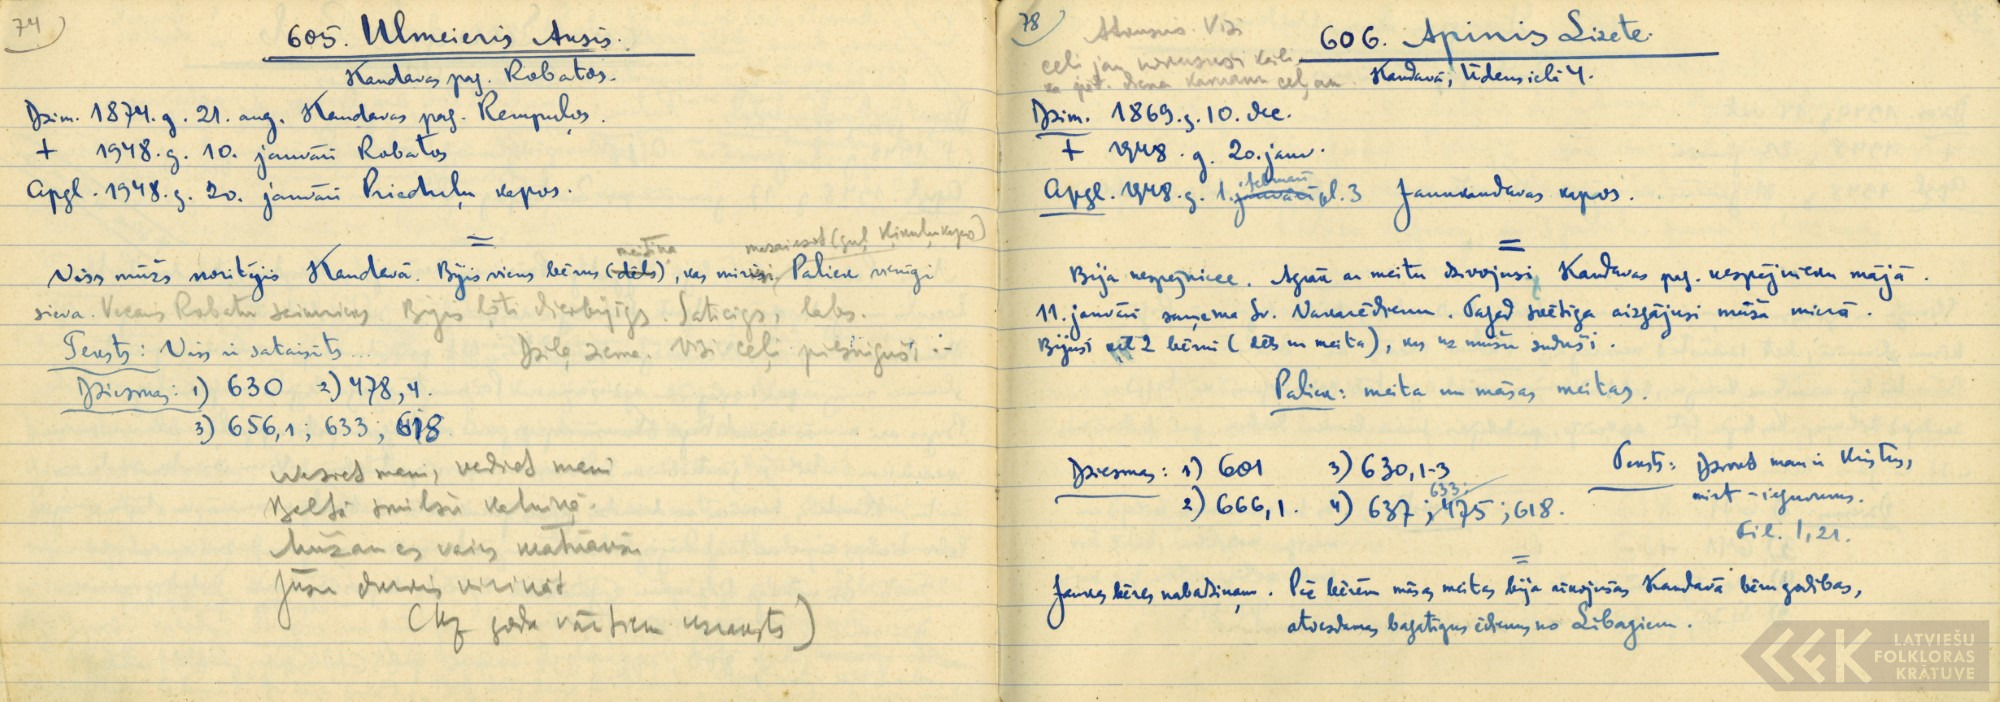 74
605. Ulmeieris Ansis.
Kandavas pag. Robatos.
Dzim. 1874. g. 21. aug. Kandavas pag. Rempuļos.
+ 1948. g. 10. janvāri Robatos
Apgl. 1948. g. 20. janvāri Priežukuļu kapos.
=
meitiņa
Viss mūžs noritējis Kandavā. Bijis viens bērns (dēls), kas miris. Paliek vienīgi
sieva. Vecais Robatu saimnieks. Bijis ļoti dievbijīgs Saticīgs, labs.
Teksts: Viss ir sataisīts...
Dziļa ziema. Visi ceļi piesniguši.
Dziesmas: 1) 630 2) 478, 4.
3) 656, 1; 633; 618.
mani, vediet mani
Baltā smilšu kalniņā
Mūžam es vairs nenākšu
Jūsu durvis virināt
(Uz goda vārtiem uzraksts)
78
Atkusnis. Visi
ceļi jau
606. Apinis Lizete.
Kandavā, Ūdens ielā 4.
Dzim. 1869. g. 10. dec.
+ 1948. g. 20. janv.
februārī
Apgl. 1948. g. 1. janvārī pl. 3 Jaunkandavas kapos.
=
Bija nespējniece. Agrāk ar meitu dzīvojusi Kandavas pag. nespējnieku mājā.
11. janvāri saņēma Sv. Vakarēdienu. Tagad svētīga aizgājusi mūža mierā.
Bijuši 2 bērni (dēls un meita), kas
Paliek: meita un māsas meitas.
Dziesmas: 1) 601 3) 630, 1-3
633;
2) 666, 1. 4) 637; 475; 618.
Teksts: Dzīvot man ir Kristus,
mirt - ieguvums.
Fil. 1, 21.
=
Jaukas bēres nabadziņam. Pēc bērēm māsas meitas bija aizvojušas Kandavā bēru godības,
atvesdamas bagātīgus ēdienus no Lībagiem.
LATVIEŠU
FOLKLORAS
KRĀTUVE